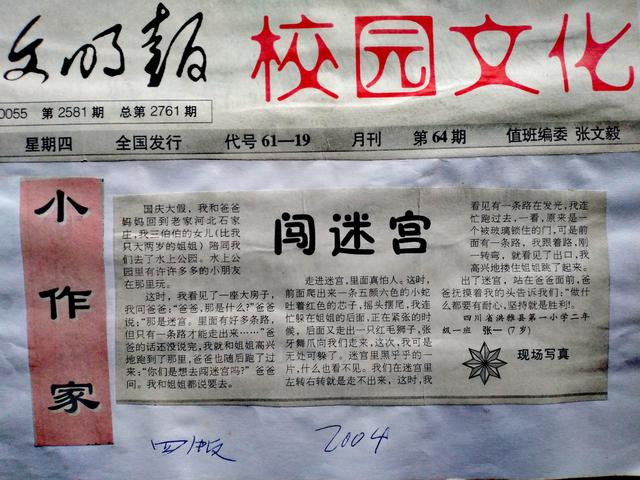 文明报
校园文化
0055 第2581期 总第2761期
星期四 全国发行 代号61—19 月刊 第64期 值班编委 张文毅
小作家
闯迷宫
国庆大假，我和爸爸
妈妈回到老家河北石家
庄，我三伯伯的女儿(比我
只大两岁的姐姐)陪同我
们去了水上公园。水上公
园里有许许多多的小朋友
在那里玩。
这时，我看见了一座大房子，
我问爸爸：“爸爸，那是什么？”爸爸
说：“那是迷宫。里面有好多条路，
但只有一条路才能走出来……”爸
爸的话还没说完，我就和姐姐高兴
地跑到了那里，爸爸也随后跑了过
来：“你们是想去闯迷宫吗？”爸爸
问。我和姐姐都说要去。
走进迷宫，里面真怕人。这时，
前面爬出来一条五颜六色的小蛇
吐着红色的芯子，摇头摆尾，我连
忙躲在姐姐的后面，正在紧张的时
候，后面又走出一只红毛狮子，张
牙舞爪向我们走来，这次，我可是
无处可躲了。迷宫里黑乎乎的一
片，什么也看不见。我们在迷宫里
左转右转就是走不出来，这时，我
看见有一条路在发光，我连
忙跑过去，一看，原来是一
个被玻璃锁住的门，可是前
面有一条路，我跟着路，刚
一转弯，就看见了出口，我
高兴地搂住姐姐跳了起来。
出了迷宫，站在爸爸面前，爸
爸抚摸着我的头告诉我们：“做什
么都要有耐心，坚持就是胜利！”。
四川省洪雅县第一小学二年
级一班 张一(7岁)
现场写真
四版 2004